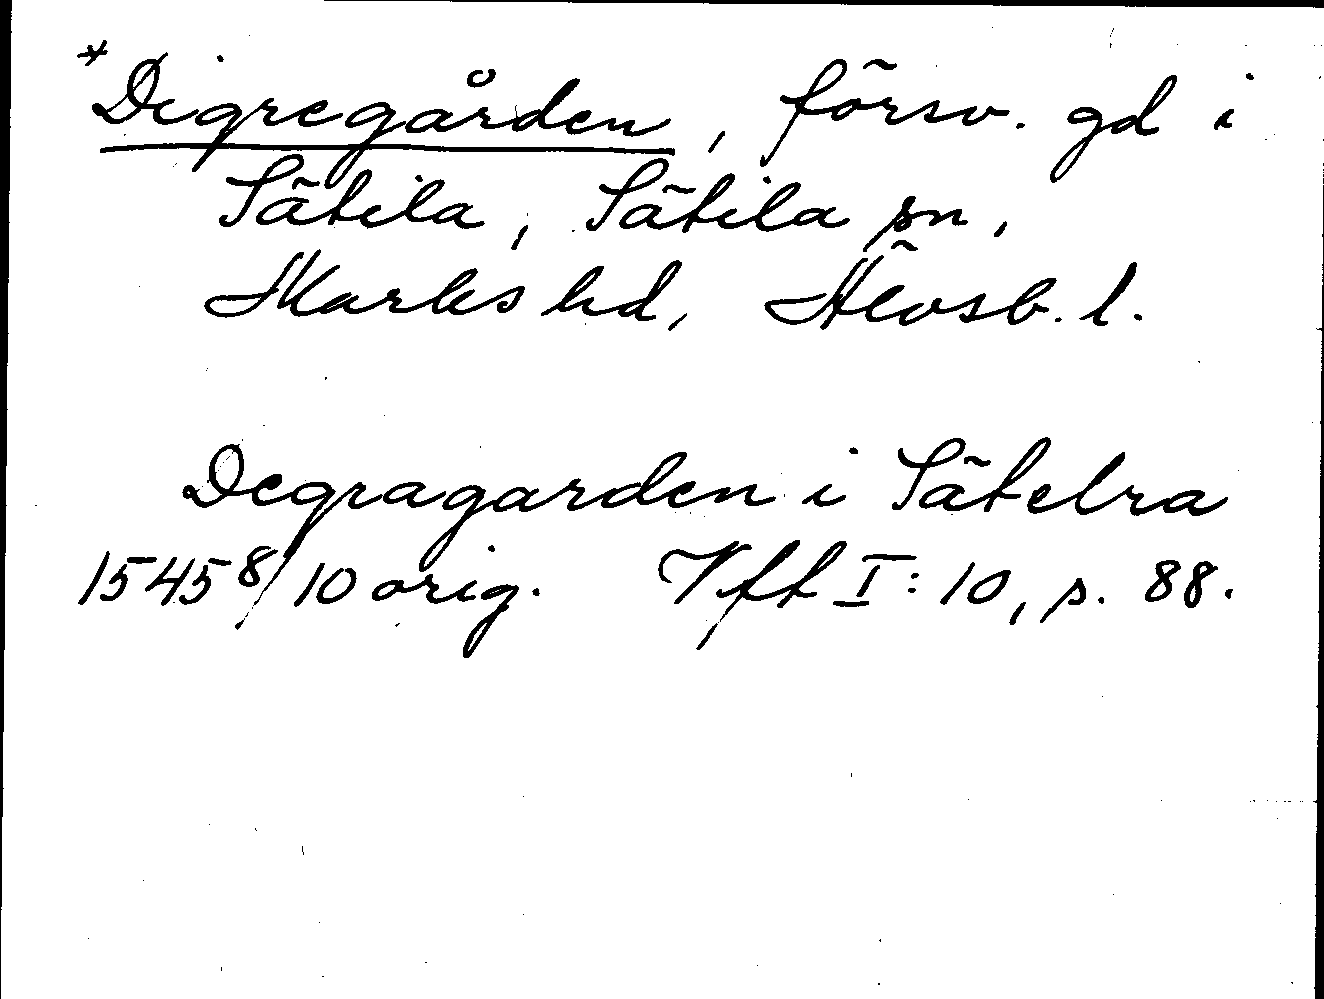 *Digregården, försv. gd i
Sätila, Sätila sn,
Marks hd, Älvsb. l.
Degragarden i Sätelra
1545 8/10 orig. Vff I: 10, s. 88.